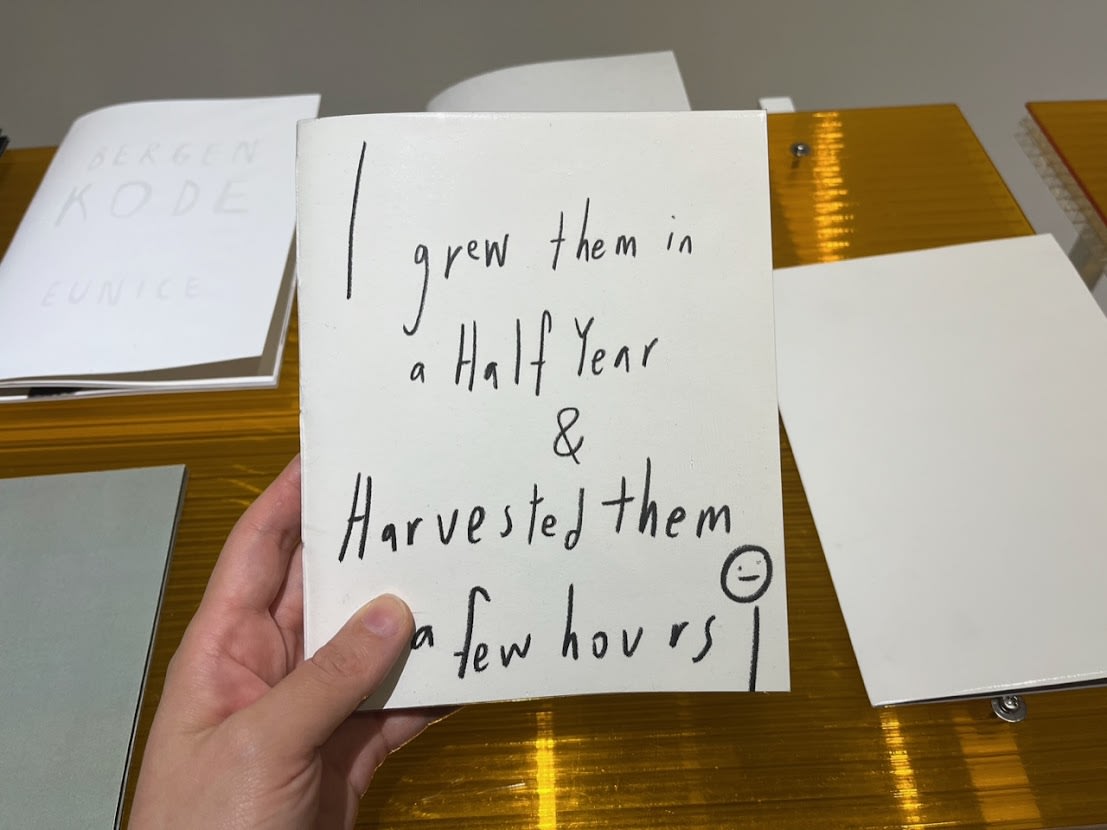 BERGEN
KODE
EUNICE
I grew them in
a Half Year
&
Harvested them
a few hours